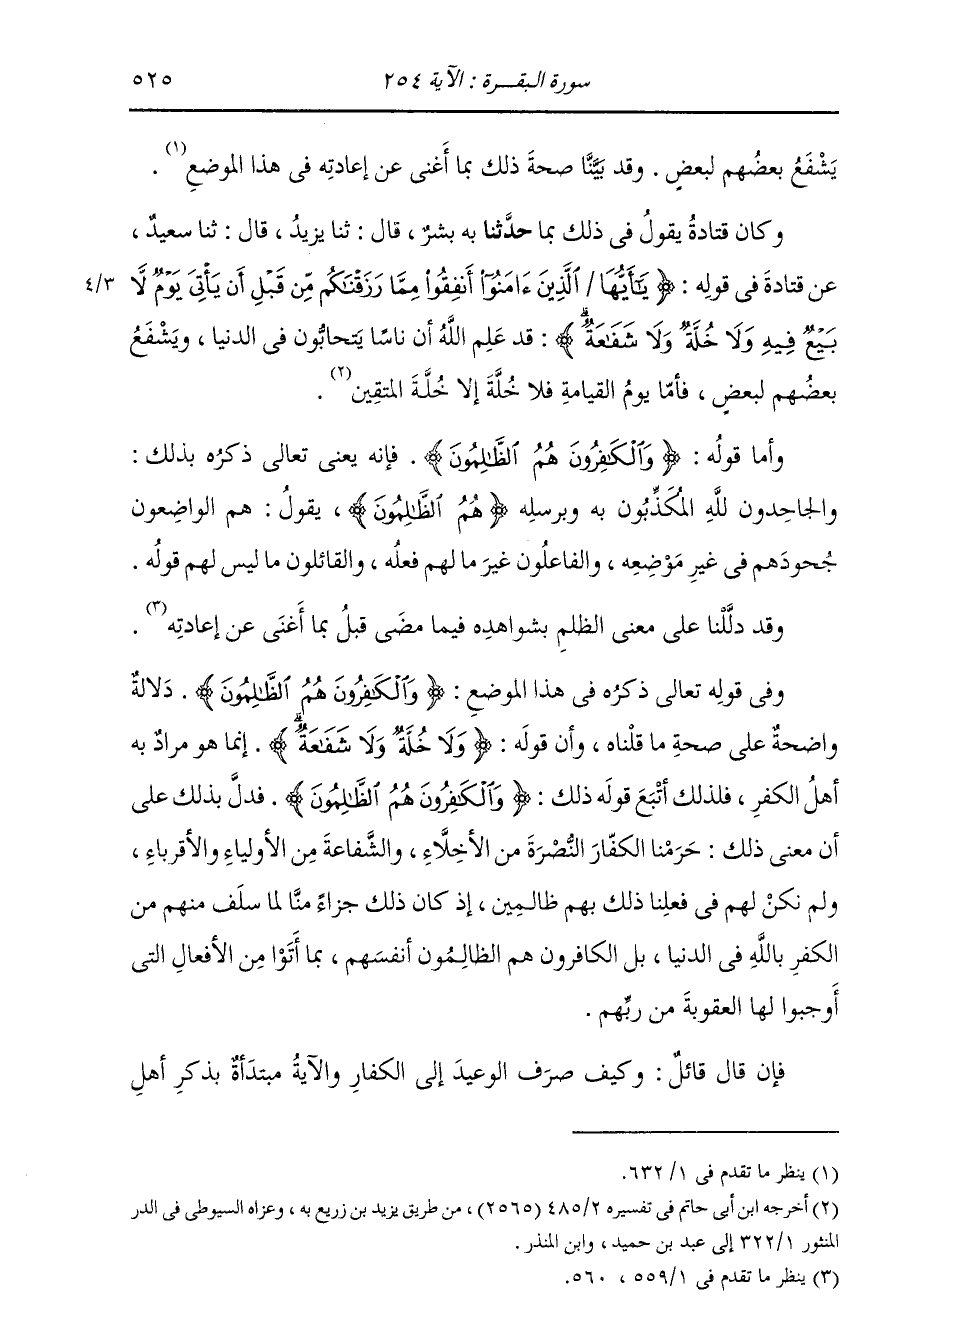 سورة البقرة : الآية ٢٥٤ ٥٢٥
يَشْفَعُ بعضُهم لبعضٍ . وقد بيَّنَّا صحةَ ذلك بما أَغنى عن إعادتِه فى هذا الموضعِ(١) .
وكان قتادةُ يقولُ فى ذلك بما حدَّثنا به بشرٌ ، قال : ثنا يزيدُ ، قال : ثنا سعيدٌ ،
عن قتادةَ فى قولِه : ﴿ يَٰٓأَيُّهَا / ٱلَّذِينَ ءَامَنُوٓا۟ أَنفِقُوا۟ مِمَّا رَزَقْنَٰكُم مِّن قَبْلِ أَن يَأْتِىَ يَوْمٌ لَّا ٤/٣
بَيْعٌ فِيهِ وَلَا خُلَّةٌ وَلَا شَفَٰعَةٌ ۗ ﴾ : قد عَلِم اللَّهُ أن ناسًا يَتحابُّون فى الدنيا ، ويَشْفَعُ
بعضُهم لبعضٍ ، فأمّا يومُ القيامةِ فلا خُلَّةَ إلا خُلَّةَ المتقِين(٢) .
وأما قولُه : ﴿ وَٱلْكَٰفِرُونَ هُمُ ٱلظَّٰلِمُونَ ﴾ . فإنه يعنى تعالى ذكرُه بذلك :
والجاحِدون للَّهِ المُكَذِّبُون به وبرسلِه ﴿ هُمُ ٱلظَّٰلِمُونَ ﴾ ، يقولُ : هم الواضِعون
جُحودَهم فى غيرِ مَوْضِعِه ، والفاعلُون غيرَ ما لهم فعلُه ، والقائلون ما ليس لهم قولُه .
وقد دلَّلْنا على معنى الظلمِ بشواهدِه فيما مضَى قبلُ بما أَغنَى عن إعادتِه(٣) .
وفى قولِه تعالى ذكرُه فى هذا الموضعِ : ﴿ وَٱلْكَٰفِرُونَ هُمُ ٱلظَّٰلِمُونَ ﴾ . دَلالةٌ
واضحةٌ على صحةِ ما قلْناه ، وأن قولَه : ﴿ وَلَا خُلَّةٌ وَلَا شَفَٰعَةٌ ۗ ﴾ . إنما هو مرادٌ به
أهلُ الكفرِ ، فلذلك أَتْبَعَ قولَه ذلك : ﴿ وَٱلْكَٰفِرُونَ هُمُ ٱلظَّٰلِمُونَ ﴾ . فدلَّ بذلك على
أن معنى ذلك : حَرَمْنا الكفّارَ النُّصْرَةَ من الأخِلَّاءِ ، والشَّفاعةَ مِن الأولياءِ والأقرباءِ ،
ولم نكنْ لهم فى فعلِنا ذلك بهم ظالـمِين ، إذ كان ذلك جزاءً منَّا لما سلَف منهم من
الكفرِ باللَّهِ فى الدنيا ، بل الكافرون هم الظالِمُون أنفسَهم ، بما أَتَوْا مِن الأفعالِ التى
أَوجبوا لها العقوبةَ من ربِّهم .
فإن قال قائلٌ : وكيف صرَف الوعيدَ إلى الكفارِ والآيةُ مبتدَأةٌ بذكرِ أهلِ
(١) ينظر ما تقدم فى ١/ ٦٣٢.
(٢) أخرجه ابن أبى حاتم فى تفسيره ٢/ ٤٨٥ (٢٥٦٥) ، من طريق يزيد بن زريع به ، وعزاه السيوطى فى الدر
المنثور ١/ ٣٢٢ إلى عبد بن حميد ، وابن المنذر .
(٣) ينظر ما تقدم فى ١/ ٥٥٩ ، ٥٦٠.